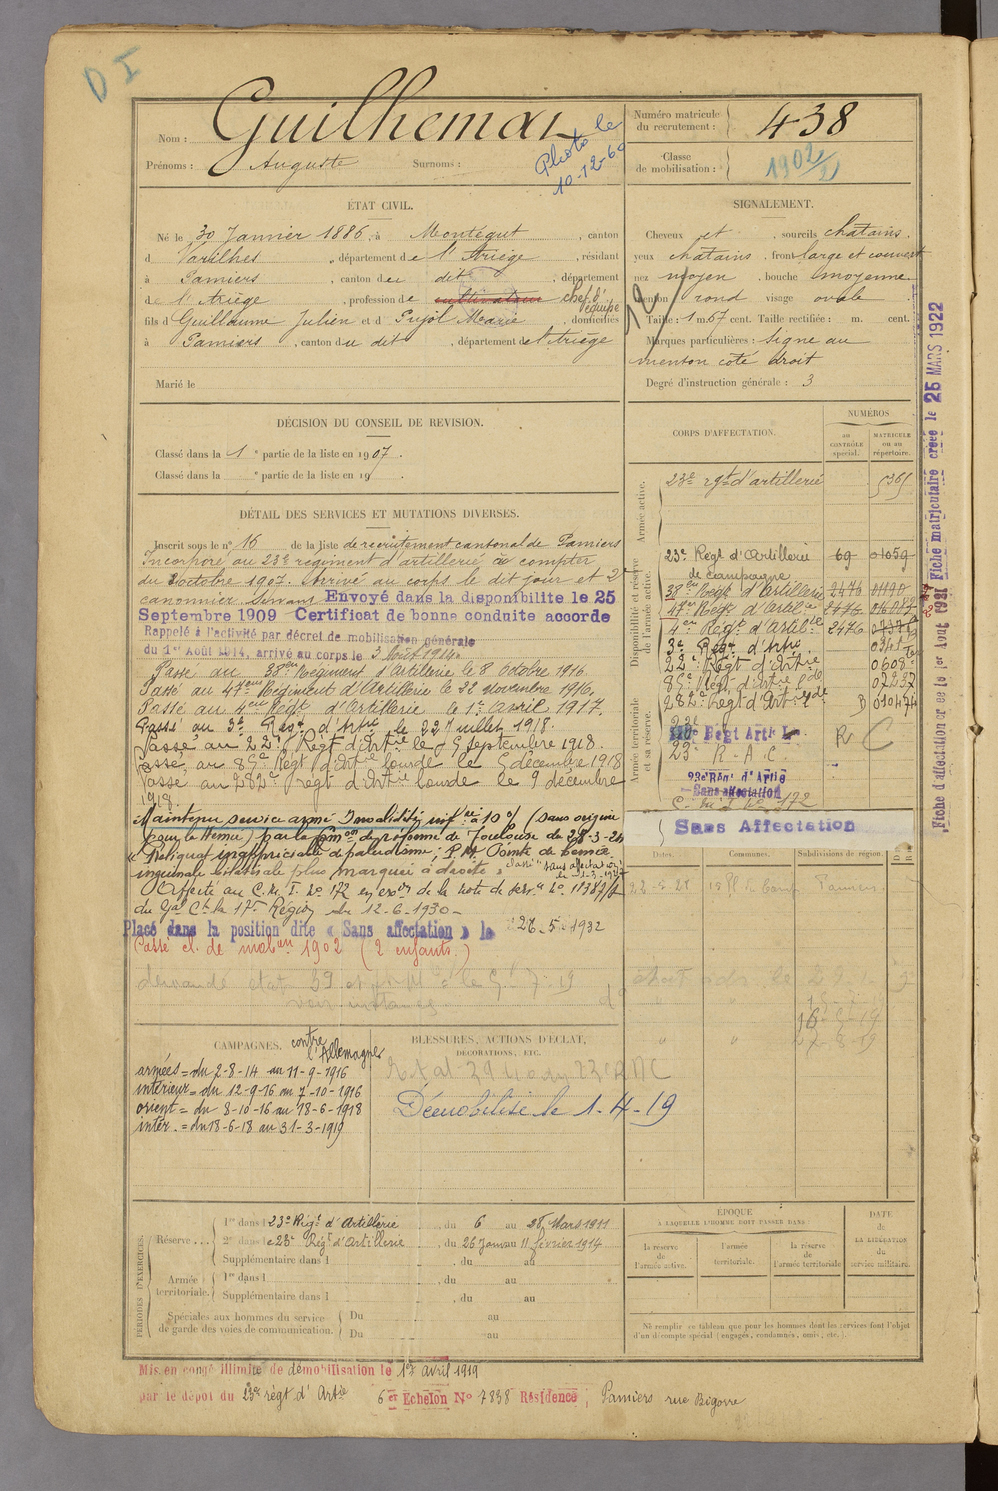 D I
Nom : Guilhemat
Prénoms : Auguste Surnoms :
Photo le
10-12-60
Numéro matricule
du recrutement : 438
Classe
de mobilisation : 1902
ÉTAT CIVIL.
Né le 30 Janvier 1886, à Montégut, canton
d Varilhes, département de l'Ariège, résidant
à Pamiers, canton du dit, département
de l'Ariège, profession de cultivateur chef d'équipe
fils d Guillaume Julien et d Pujol Marie, domiciliés
à Pamiers, canton du dit, département de l'Ariège
Marié le
SIGNALEMENT.
Cheveux et sourcils chatains.
yeux chatains, front large et couvert
nez moyen, bouche moyenne
menton rond visage ovale
Taille : 1 m. 67 cent. Taille rectifiée : m. cent.
Marques particulières : Signe au
menton coté droit
Degré d'instruction générale : 3
DÉCISION DU CONSEIL DE REVISION.
Classé dans la 1e partie de la liste en 1907.
Classé dans la e partie de la liste en 19 .
DÉTAIL DES SERVICES ET MUTATIONS DIVERSES.
Inscrit sous le n° 16 de la liste de recrutement cantonal de Pamiers
Incorporé au 23e régiment d'artillerie à compter
du 8 octobre 1907. Arrivé au corps le dit jour et 2e
canonnier servant Envoyé dans la disponibilité le 25
Septembre 1909 Certificat de bonne conduite accordé
Rappelé à l'activité par décret de mobilisation générale
du 1er Août 1914, arrivé au corps le 3 Août 1914
Passé au 38eme Régiment d'Artillerie le 8 octobre 1916.
Passé au 47eme Régiment d'Artillerie le 22 novembre 1916.
Passé au 4eme Régt d'Artillerie le 1er avril 1917.
Passé au 3e Régt d'Artie le 22 Juillet 1918.
Passé au 22e Régt d'Artie le 5 Septembre 1918.
Passé au 85e Régt d'Artie lourde le 5 décembre 1918
Passé au 282e régt d'Artie lourde le 9 décembre
1918.
Maintenu service armé Invalidité infre à 10% (sans origine
pour le hernie) par la Comon de réforme de Toulouse du 28-3-24
"Reliquat inappréciable de paludisme ; P. M. Pointe de hernie
inguinale bilatérale plus marquée à droite" classé "sans affectation"
le 1-3-1927
Affecté au C.M.I. No 172 en exon de la note de serv. No 11387/
du Gal Ct la 17e Région du 12-6-1930-
Placé dans la position dite « Sans affectation » le 27-5-1932
Passé cl. de mobon 1902 (2 enfants)
CORPS D'AFFECTATION.
NUMÉROS
au
CONTRÔLE
spécial.
MATRICULE
ou au
répertoire.
Armée active.
23e rgt d'artillerie 5365
Disponibilité et réserve
de l'armée active.
23e Régt d'Artillerie 69 01059
de campagne
38em Régt d'Artillerie 2476
47em Régt d'Artie 2476
4em Régt d'Artie 2476
3e Régt d'Artie
22e Régt d'Artie 0608
85e Régt d'Artie lde 07237
282e Régt d'Artie lde 010474
Armée territoriale
et sa réserve.
Régt Artie R C
23e R.A.C.
23e Rég. d'Artie
Sans affectation
C.M.I. No 172
Sans Affectation
Dates. Communes. Subdivisions de région. D R
Pamiers
Fiche matriculaire créée le 25 MARS 1922
Fiche d'affectation créée le 1er Août 1931
CAMPAGNES. contre
l'Allemagne
armées = du 2-8-14 au 11-9-1916
intérieur = du 12-9-16 au 7-10-1916
orient = du 8-10-16 au 18-6-1918
intér. = du 18-6-18 au 31-3-1919
BLESSURES, ACTIONS D'ÉCLAT,
DÉCORATIONS, ETC.
Démobilisé le 1-4-19
PÉRIODES D'EXERCICES.
Réserve ... 1re dans l 23e Régt d'Artillerie, du 6 au 28 Mars 1911
2e dans l e 23e Régt d'Artillerie, du 26 Janv au 11 février 1914
Supplémentaire dans l , du au
Armée
territoriale. 1re dans l , du au
Supplémentaire dans l , du au
Spéciales aux hommes du service
de garde des voies de communication. Du au
Du au
ÉPOQUE
À LAQUELLE L'HOMME DOIT PASSER DANS :
la réserve
de
l'armée active.
l'armée
territoriale.
la réserve
de
l'armée territoriale
DATE
de
LA LIBÉRATION
du
service militaire.
Ne remplir ce tableau que pour les hommes dont les services font l'objet
d'un décompte spécial (engagés, condamnés, omis, etc.).
Mis en congé illimité de démobilisation le 1er avril 1919
par le dépôt du 23e régt d'Artie 6e Echelon No 7838 Résidence, Pamiers rue Bigorre